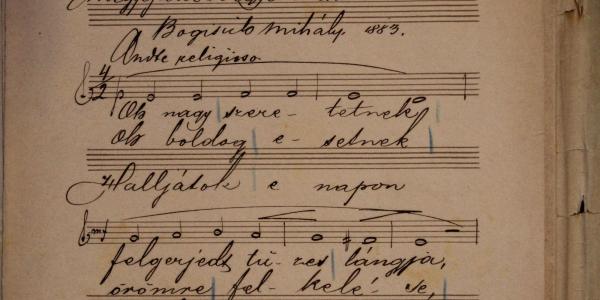 Bogisich Mihály. 1883.
Andte religioso.
4
2
p
Oh nagy szere- tetnek
Oh boldog e- setnek
Halljátok e napon
mf
felgerjedt tü- zes lángja,
örömre fel- kelé- se,